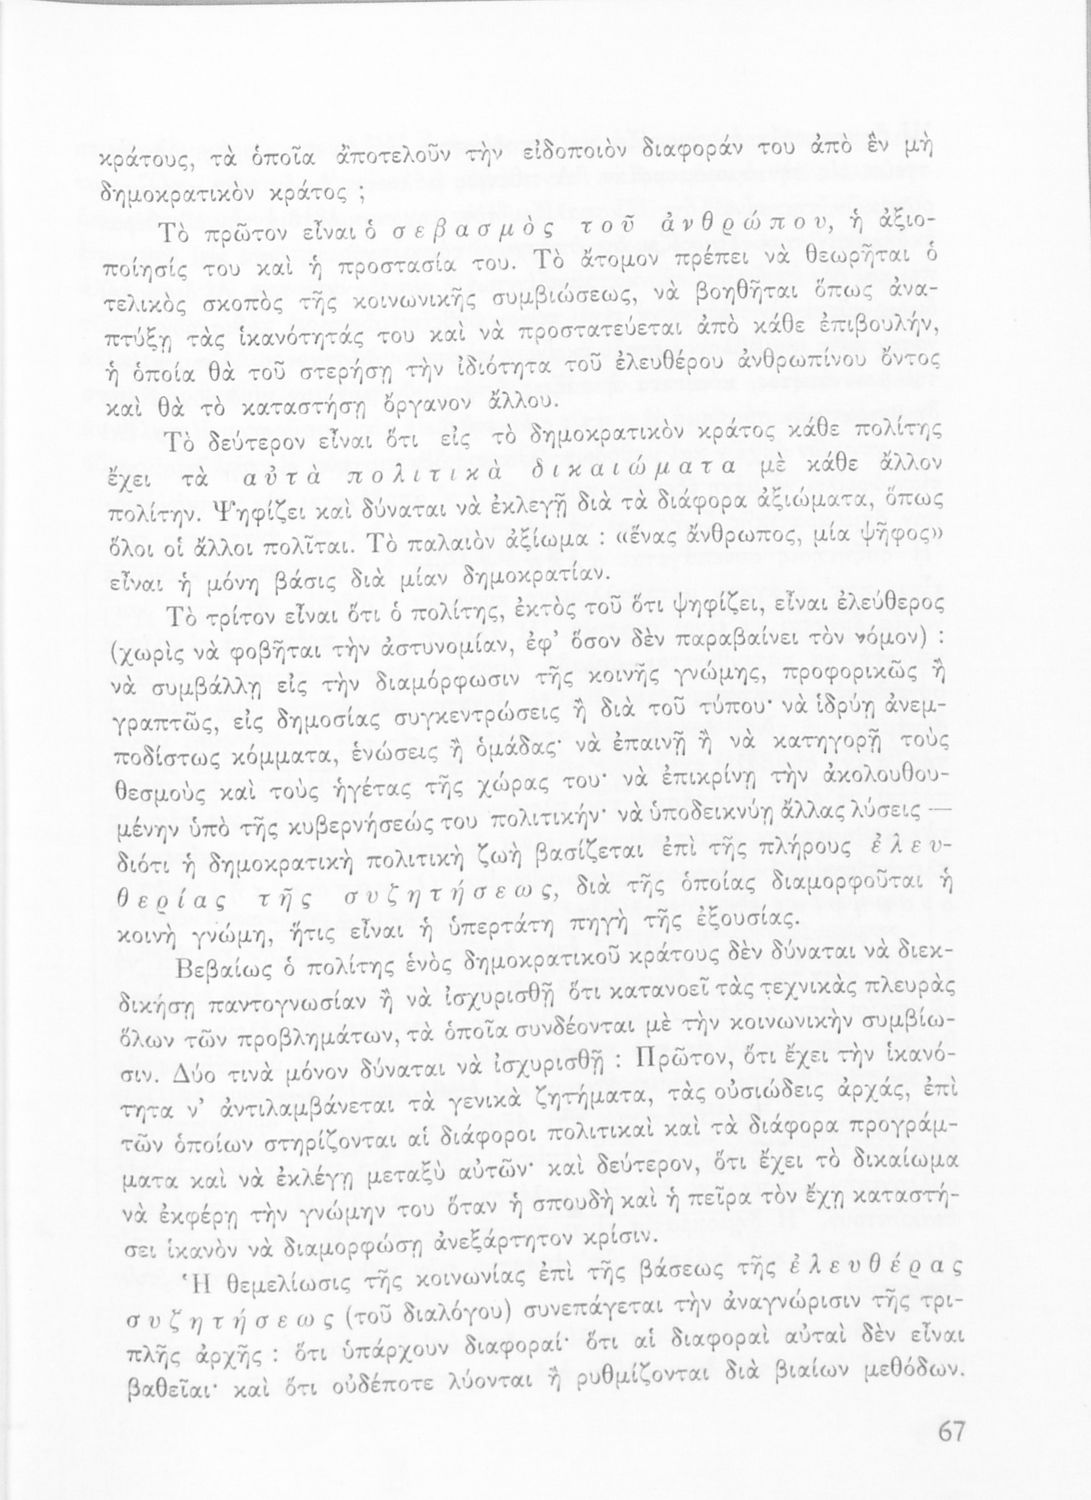 κράτους, τὰ ὁποῖα ἀποτελοῦν τὴν εἰδοποιὸν διαφοράν του ἀπὸ ἓν μὴ
δημοκρατικὸν κράτος ;
Τὸ πρῶτον εἶναι ὁ σεβασμὸς τοῦ ἀνθρώπου, ἡ ἀξιο-
ποίησίς του καὶ ἡ προστασία του. Τὸ ἄτομον πρέπει νὰ θεωρῆται ὁ
τελικὸς σκοπὸς τῆς κοινωνικῆς συμβιώσεως, νὰ βοηθῆται ὅπως ἀνα-
πτύξῃ τὰς ἱκανότητάς του καὶ νὰ προστατεύεται ἀπὸ κάθε ἐπιβουλήν,
ἡ ὁποία θὰ τοῦ στερήσῃ τὴν ἰδιότητα τοῦ ἐλευθέρου ἀνθρωπίνου ὄντος
καὶ θὰ τὸ καταστήσῃ ὄργανον ἄλλου.
Τὸ δεύτερον εἶναι ὅτι εἰς τὸ δημοκρατικὸν κράτος κάθε πολίτης
ἔχει τὰ αὐτὰ πολιτικὰ δικαιώματα μὲ κάθε ἄλλον
πολίτην. Ψηφίζει καὶ δύναται νὰ ἐκλεγῇ διὰ τὰ διάφορα ἀξιώματα, ὅπως
ὅλοι οἱ ἄλλοι πολῖται. Τὸ παλαιὸν ἀξίωμα : «ἕνας ἄνθρωπος, μία ψῆφος»
εἶναι ἡ μόνη βάσις διὰ μίαν δημοκρατίαν.
Τὸ τρίτον εἶναι ὅτι ὁ πολίτης, ἐκτὸς τοῦ ὅτι ψηφίζει, εἶναι ἐλεύθερος
(χωρὶς νὰ φοβῆται τὴν ἀστυνομίαν, ἐφ’ ὅσον δὲν παραβαίνει τὸν νόμον) :
νὰ συμβάλλῃ εἰς τὴν διαμόρφωσιν τῆς κοινῆς γνώμης, προφορικῶς ἢ
γραπτῶς, εἰς δημοσίας συγκεντρώσεις ἢ διὰ τοῦ τύπου· νὰ ἱδρύῃ ἀνεμ-
ποδίστως κόμματα, ἑνώσεις ἢ ὁμάδας· νὰ ἐπαινῇ ἢ νὰ κατηγορῇ τοὺς
θεσμοὺς καὶ τοὺς ἡγέτας τῆς χώρας του· νὰ ἐπικρίνῃ τὴν ἀκολουθου-
μένην ὑπὸ τῆς κυβερνήσεώς του πολιτικήν· νὰ ὑποδεικνύῃ ἄλλας λύσεις —
διότι ἡ δημοκρατικὴ πολιτικὴ ζωὴ βασίζεται ἐπὶ τῆς πλήρους ἐλευ-
θερίας τῆς συζητήσεως, διὰ τῆς ὁποίας διαμορφοῦται ἡ
κοινὴ γνώμη, ἥτις εἶναι ἡ ὑπερτάτη πηγὴ τῆς ἐξουσίας.
Βεβαίως ὁ πολίτης ἑνὸς δημοκρατικοῦ κράτους δὲν δύναται νὰ διεκ-
δικήσῃ παντογνωσίαν ἢ νὰ ἰσχυρισθῇ ὅτι κατανοεῖ τὰς τεχνικὰς πλευρὰς
ὅλων τῶν προβλημάτων, τὰ ὁποῖα συνδέονται μὲ τὴν κοινωνικὴν συμβίω-
σιν. Δύο τινὰ μόνον δύναται νὰ ἰσχυρισθῇ : Πρῶτον, ὅτι ἔχει τὴν ἱκανό-
τητα ν’ ἀντιλαμβάνεται τὰ γενικὰ ζητήματα, τὰς οὐσιώδεις ἀρχάς, ἐπὶ
τῶν ὁποίων στηρίζονται αἱ διάφοροι πολιτικαὶ καὶ τὰ διάφορα προγράμ-
ματα καὶ νὰ ἐκλέγῃ μεταξὺ αὐτῶν· καὶ δεύτερον, ὅτι ἔχει τὸ δικαίωμα
νὰ ἐκφέρῃ τὴν γνώμην του ὅταν ἡ σπουδὴ καὶ ἡ πεῖρα τὸν ἔχῃ καταστή-
σει ἱκανὸν νὰ διαμορφώσῃ ἀνεξάρτητον κρίσιν.
Ἡ θεμελίωσις τῆς κοινωνίας ἐπὶ τῆς βάσεως τῆς ἐλευθέρας
συζητήσεως (τοῦ διαλόγου) συνεπάγεται τὴν ἀναγνώρισιν τῆς τρι-
πλῆς ἀρχῆς : ὅτι ὑπάρχουν διαφοραί· ὅτι αἱ διαφοραὶ αὐταὶ δὲν εἶναι
βαθεῖαι· καὶ ὅτι οὐδέποτε λύονται ἢ ρυθμίζονται διὰ βιαίων μεθόδων.
67